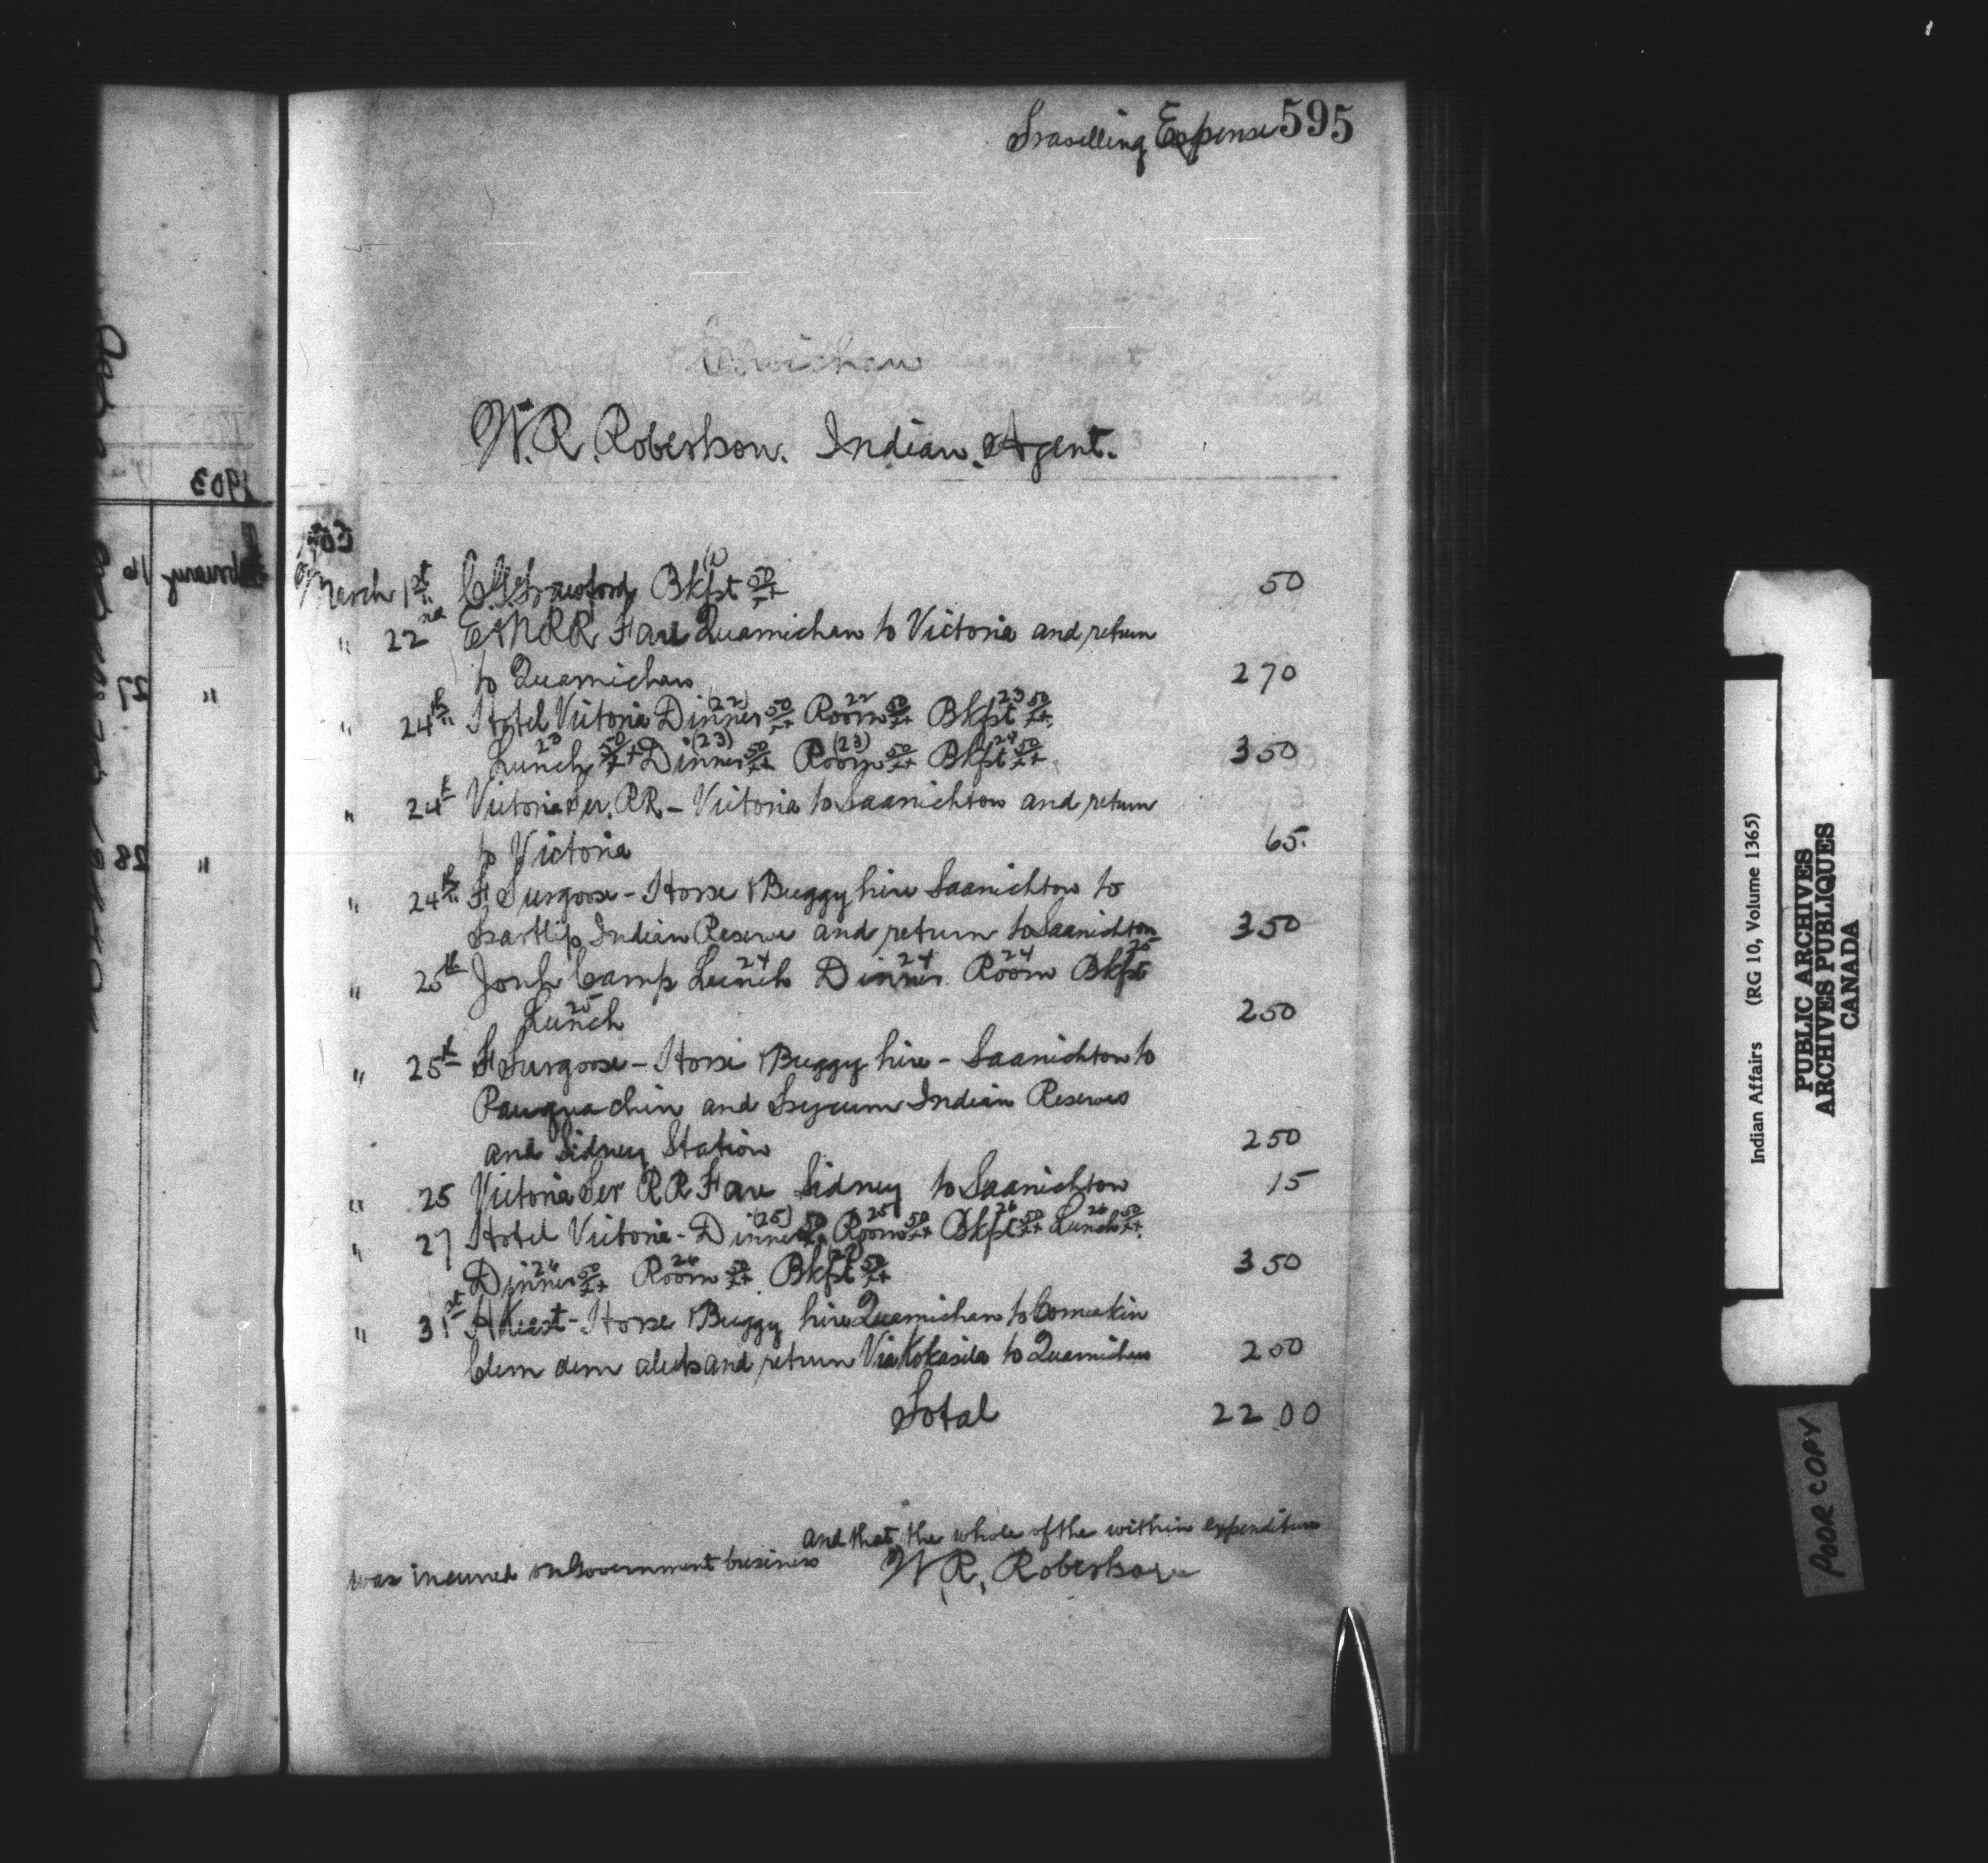 Travelling Expense 595
Cowichan
W.R. Robertson. Indian Agent.
1903
March 1st Bkfst (1) 50 50
" 22nd E&NRR Fare Quamichan to Victoria and return
to Quamichan 2 70
" 24th Hotel Victoria Dinner (22) 50 Room 22 50 Bkfst 23 50
Lunch 23 50 Dinner (23) 50 Room (23) 50 Bkfst 24 50 3 50
" 24th Victoria Ter. RR - Victoria to Saanichton and return
to Victoria 65.
" 24th F Turgoose - Horse & Buggy hire Saanichton to
Tsartlip Indian Reserve and return to Saanichton 3 50
" 25th Camp Lunch 24 Dinner 24 Room 24 Bkfst 25
Lunch 25 2 50
" 25th F Turgoose - Horse & Buggy hire - Saanichton to
Pauquachin and Tseycum Indian Reserves
and Sidney Station 2 50
" 25 Victoria Ter RR Fare Sidney to Saanichton 15
" 27 Hotel Victoria - Dinner (25) 50 Room 25 50 Bkfst 26 50 Lunch 26 50
Dinner 26 50 Room 26 50 Bkfst (27) 50 3 50
" 31st Keast - Horse & Buggy hire Quamichan to Comeakin
Clem clem aluts and return Via Kokasila to Quamichan 2 50
Total 22 00
and that the whole of the within expenditure
was incurred on Government business W.R. Robertson
1903
February 16
" 27
" 28
Indian Affairs (RG 10, Volume 1365)
PUBLIC ARCHIVES
ARCHIVES PUBLIQUES
CANADA
POOR COPY